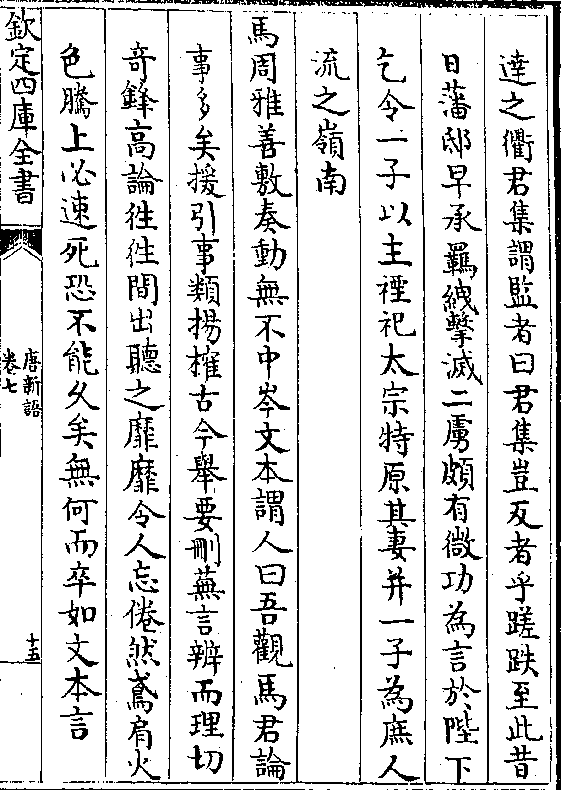 達之衢君集謂監者曰君集豈反者乎蹉跌至此昔
日藩邸早承羈絏擊滅二虜頗有微功為言於陛下
乞令一子以主禋祀太宗特原其妻并一子為庶人
流之嶺南
馬周雅善敷奏動無不中岑文本謂人曰吾觀馬君論
事多矣援引事類揚搉古今舉要刪蕪言辨而理切
奇鋒高論往往間出聽之靡靡令人忘倦然鳶肩火
色騰上必速死恐不能久矣無何而卒如文本言
欽定四庫全書
唐新語
卷七
十五